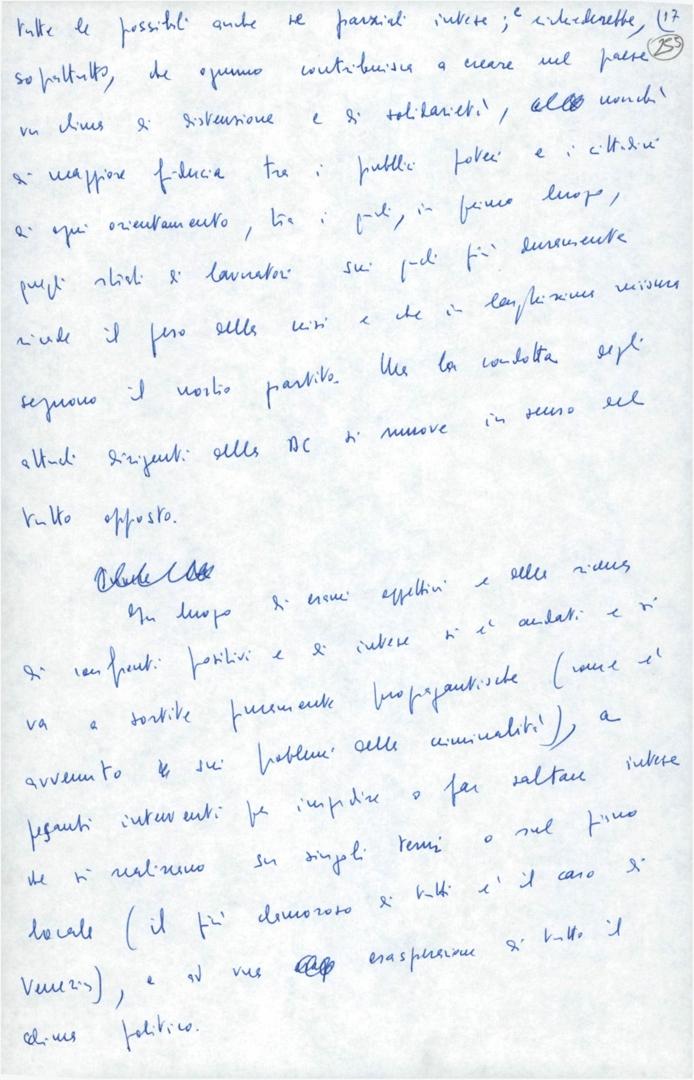 tutte le possibili anche se parziali intese; e richiederebbe, (17
soprattutto, che ognuno contribuisca a creare nel paese 255
un clima di distensione e di solidarietà, nonché
di maggiore fiducia tra i pubblici poteri e i cittadini
di ogni orientamento, tra i quali, in primo luogo,
quegli strati di lavoratori sui quali più duramente
ricade il peso della crisi e che in larghissima misura
seguono il nostro partito. Ma la condotta degli
attuali dirigenti della DC si muove in senso del
tutto opposto.
In luogo di esami effettivi e della ricerca
di confronti positivi e di intese si è andati e si
va a sortite puramente propagantistiche (come è
avvenuto sui problemi della criminalità), a
pesanti interventi per impedire o far saltare intese
che si realizzano su singoli temi o sul piano
locale (il più clamoroso di tutti è il caso di
Venezia), e ad una esasperazione di tutto il
clima politico.